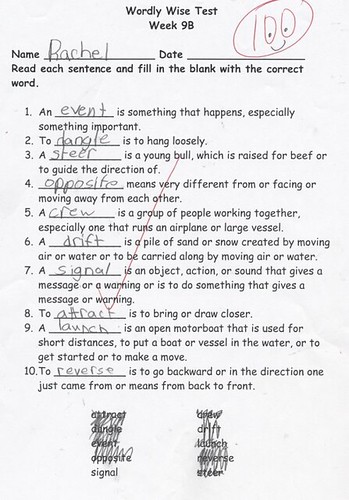 Wordly Wise Test
Week 9B
100
Name Rachel Date
Read each sentence and fill in the blank with the correct
word.
1. An event is something that happens, especially
something important.
2. To dangle is to hang loosely.
3. A steer is a young bull, which is raised for beef or
to guide the direction of.
4. opposite means very different from or facing or
moving away from each other.
5. A crew is a group of people working together,
especially one that runs an airplane or large vessel.
6. A drift is a pile of sand or snow created by moving
air or water or to be carried along by moving air or water.
7. A signal is an object, action, or sound that gives a
message or a warning or is to do something that gives a
message or warning.
8. To attract is to bring or draw closer.
9. A launch is an open motorboat that is used for
short distances, to put a boat or vessel in the water, or to
get started or to make a move.
10. To reverse is to go backward or in the direction one
just came from or means from back to front.
attract crew
dangle drift
event launch
opposite reverse
signal steer